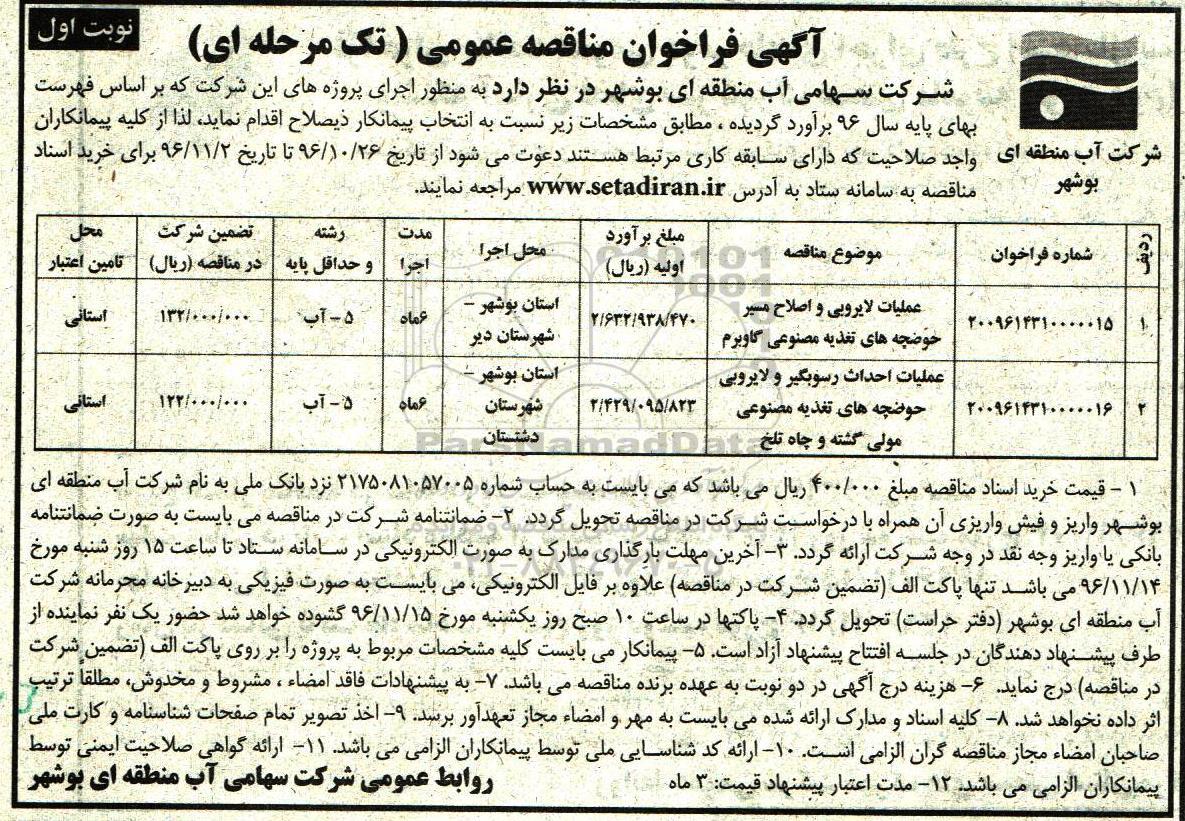 نوبت اول
آگهی فراخوان مناقصه عمومی ( تک مرحله ای)
شرکت آب منطقه ای
بوشهر
شرکت سهامی آب منطقه ای بوشهر در نظر دارد به منظور اجرای پروژه های این شرکت که بر اساس فهرست
بهای پایه سال ۹۶ برآورد گردیده ، مطابق مشخصات زیر نسبت به انتخاب پیمانکار ذیصلاح اقدام نماید، لذا از کلیه پیمانکاران
واجد صلاحیت که دارای سابقه کاری مرتبط هستند دعوت می شود از تاریخ ۹۶/۱۰/۲۶ تا تاریخ ۹۶/۱۱/۲ برای خرید اسناد
مناقصه به سامانه ستاد به آدرس www.setadiran.ir مراجعه نمایند.
ردیف | شماره فراخوان | موضوع مناقصه | مبلغ برآورد اولیه (ریال) | محل اجرا | مدت اجرا | رشته و حداقل پایه | تضمین شرکت در مناقصه (ریال) | محل تامین اعتبار
۱ | ۲۰۰۹۶۱۴۳۱۰۰۰۰۰۱۵ | عملیات لایروبی و اصلاح مسیر حوضچه های تغذیه مصنوعی گاوبرم | ۲/۶۳۲/۹۳۸/۴۷۰ | استان بوشهر – شهرستان دیر | ۶ماه | ۵ – آب | ۱۳۲/۰۰۰/۰۰۰ | استانی
۲ | ۲۰۰۹۶۱۴۳۱۰۰۰۰۰۱۶ | عملیات احداث رسوبگیر و لایروبی حوضچه های تغذیه مصنوعی مولی گشته و چاه تلخ | ۲/۴۲۹/۰۹۵/۸۲۳ | استان بوشهر – شهرستان دشتستان | ۶ماه | ۵ – آب | ۱۲۲/۰۰۰/۰۰۰ | استانی
ParsNamadData
۱ – قیمت خرید اسناد مناقصه مبلغ ۴۰۰/۰۰۰ ریال می باشد که می بایست به حساب شماره ۲۱۷۵۰۸۱۰۵۷۰۰۵ نزد بانک ملی به نام شرکت آب منطقه ای
بوشهر واریز و فیش واریزی آن همراه با درخواست شرکت در مناقصه تحویل گردد. ۲- ضمانتنامه شرکت در مناقصه می بایست به صورت ضمانتنامه
بانکی یا واریز وجه نقد در وجه شرکت ارائه گردد. ۳- آخرین مهلت بارگذاری مدارک به صورت الکترونیکی در سامانه ستاد تا ساعت ۱۵ روز شنبه مورخ
۹۶/۱۱/۱۴ می باشد تنها پاکت الف (تضمین شرکت در مناقصه) علاوه بر فایل الکترونیکی، می بایست به صورت فیزیکی به دبیرخانه محرمانه شرکت
آب منطقه ای بوشهر (دفتر حراست) تحویل گردد. ۴- پاکتها در ساعت ۱۰ صبح روز یکشنبه مورخ ۹۶/۱۱/۱۵ گشوده خواهد شد حضور یک نفر نماینده از
طرف پیشنهاد دهندگان در جلسه افتتاح پیشنهاد آزاد است. ۵- پیمانکار می بایست کلیه مشخصات مربوط به پروژه را بر روی پاکت الف (تضمین شرکت
در مناقصه) درج نماید. ۶- هزینه درج آگهی در دو نوبت به عهده برنده مناقصه می باشد. ۷- به پیشنهادات فاقد امضاء ، مشروط و مخدوش، مطلقاً ترتیب
اثر داده نخواهد شد. ۸- کلیه اسناد و مدارک ارائه شده می بایست به مهر و امضاء مجاز تعهدآور برسد. ۹- اخذ تصویر تمام صفحات شناسنامه و کارت ملی
صاحبان امضاء مجاز مناقصه گران الزامی است. ۱۰- ارائه کد شناسایی ملی توسط پیمانکاران الزامی می باشد. ۱۱- ارائه گواهی صلاحیت ایمنی توسط
پیمانکاران الزامی می باشد. ۱۲- مدت اعتبار پیشنهاد قیمت: ۳ ماه
روابط عمومی شرکت سهامی آب منطقه ای بوشهر